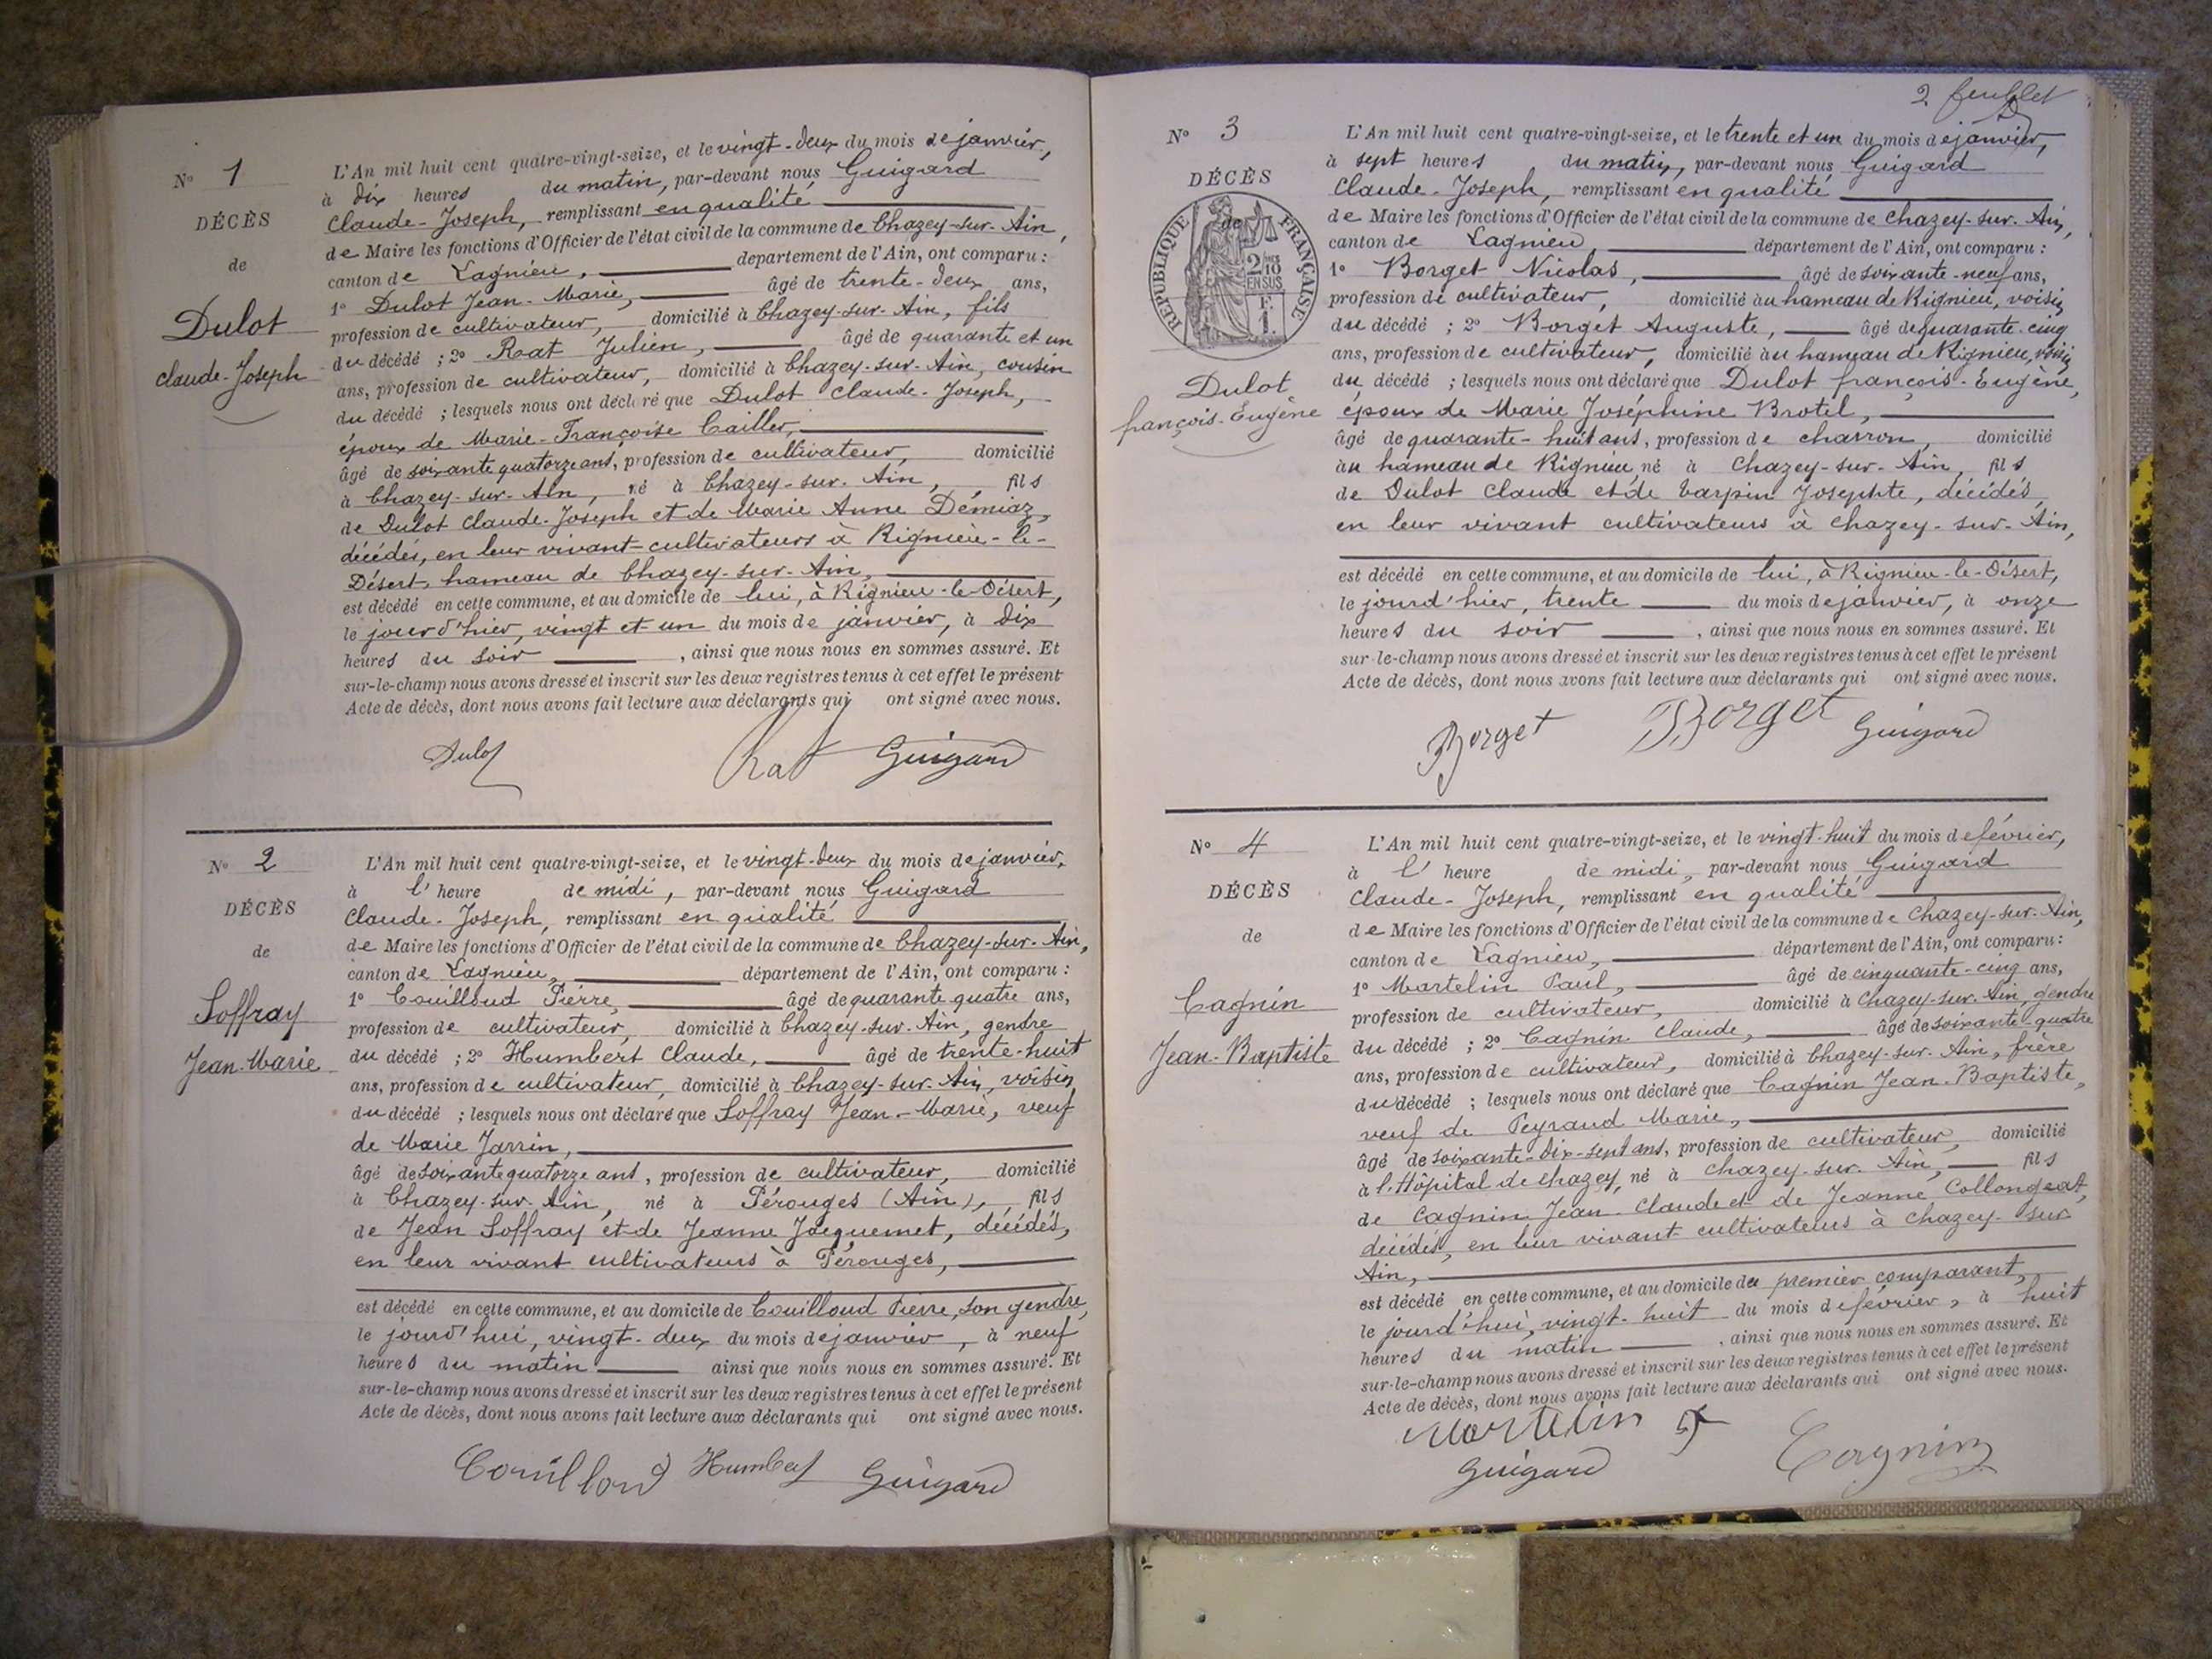 N° 1
DÉCÈS
de
Dulot
Claude-Joseph
L'An mil huit cent quatre-vingt-seize, et le vingt-deux du mois de janvier,
à dix heures du matin, par-devant nous Guigard
Claude-Joseph, remplissant en qualité
de Maire les fonctions d'Officier de l'état civil de la commune de Chazey-sur-Ain,
canton de Lagnieu, département de l'Ain, ont comparu :
1° Dulot Jean-Marie, âgé de trente-deux ans,
profession de cultivateur, domicilié à Chazey-sur-Ain, fils
du décédé ; 2° Rat Julien, âgé de quarante et un
ans, profession de cultivateur, domicilié à Chazey-sur-Ain, cousin
du décédé ; lesquels nous ont déclaré que Dulot Claude-Joseph,
époux de Marie-Françoise Cailler,
âgé de soixante quatorze ans, profession de cultivateur, domicilié
à Chazey-sur-Ain, né à Chazey-sur-Ain, fils
de Dulot Claude-Joseph et de Marie Anne Démiaz,
décédés, en leur vivant cultivateurs à Rignieu-le-
Désert, hameau de Chazey-sur-Ain,
est décédé en cette commune, et au domicile de lui, à Rignieu-le-Désert,
le jourd'hier, vingt et un du mois de janvier, à dix
heures du soir, ainsi que nous nous en sommes assuré. Et
sur-le-champ nous avons dressé et inscrit sur les deux registres tenus à cet effet le présent
Acte de décès, dont nous avons fait lecture aux déclarants qui ont signé avec nous.
Dulot Rat Guigard
N° 2
DÉCÈS
de
Soffray
Jean-Marie
L'An mil huit cent quatre-vingt-seize, et le vingt-deux du mois de janvier,
à l'heure de midi, par-devant nous Guigard
Claude-Joseph, remplissant en qualité
de Maire les fonctions d'Officier de l'état civil de la commune de Chazey-sur-Ain,
canton de Lagnieu, département de l'Ain, ont comparu :
1° Couilloud Pierre, âgé de quarante quatre ans,
profession de cultivateur, domicilié à Chazey-sur-Ain, gendre
du décédé ; 2° Humbert Claude, âgé de trente-huit
ans, profession de cultivateur, domicilié à Chazey-sur-Ain, voisin
du décédé ; lesquels nous ont déclaré que Soffray Jean-Marie, veuf
de Marie Jarrin,
âgé de soixante quatorze ans, profession de cultivateur, domicilié
à Chazey-sur-Ain, né à Pérouges (Ain), fils
de Jean Soffray et de Jeanne Jacquemet, décédés,
en leur vivant cultivateurs à Pérouges,
est décédé en cette commune, et au domicile de Couilloud Pierre, son gendre,
le jourd'hui, vingt-deux du mois de janvier, à neuf
heures du matin ainsi que nous nous en sommes assuré. Et
sur-le-champ nous avons dressé et inscrit sur les deux registres tenus à cet effet le présent
Acte de décès, dont nous avons fait lecture aux déclarants qui ont signé avec nous.
Couilloud Humbert Guigard
2 feuillet
N° 3
DÉCÈS
de
RÉPUBLIQUE FRANÇAISE
2/10
EN SUS
F.
1.
Dulot
françois-Eugène
L'An mil huit cent quatre-vingt-seize, et le trente et un du mois de janvier,
à sept heures du matin, par-devant nous Guigard
Claude-Joseph, remplissant en qualité
de Maire les fonctions d'Officier de l'état civil de la commune de Chazey-sur-Ain,
canton de Lagnieu, département de l'Ain, ont comparu :
1° Borget Nicolas, âgé de soixante-neuf ans,
profession de cultivateur, domicilié au hameau de Rignieu, voisin
du décédé ; 2° Borget Auguste, âgé de quarante-cinq
ans, profession de cultivateur, domicilié au hameau de Rignieu, voisin
du décédé ; lesquels nous ont déclaré que Dulot françois-Eugène,
époux de Marie Joséphine Brotel,
âgé de quarante-huit ans, profession de charron, domicilié
au hameau de Rignieu né à Chazey-sur-Ain, fils
de Dulot Claude et de Carpin Josephte, décédés,
en leur vivant cultivateurs à Chazey-sur-Ain,
est décédé en cette commune, et au domicile de lui, à Rignieu-le-Désert,
le jourd'hier, trente du mois de janvier, à onze
heures du soir, ainsi que nous nous en sommes assuré. Et
sur-le-champ nous avons dressé et inscrit sur les deux registres tenus à cet effet le présent
Acte de décès, dont nous avons fait lecture aux déclarants qui ont signé avec nous.
Borget Borget Guigard
N° 4
DÉCÈS
de
Cagnin
Jean-Baptiste
L'An mil huit cent quatre-vingt-seize, et le vingt-huit du mois de février,
à l'heure de midi, par-devant nous Guigard
Claude-Joseph, remplissant en qualité
de Maire les fonctions d'Officier de l'état civil de la commune de Chazey-sur-Ain,
canton de Lagnieu, département de l'Ain, ont comparu :
1° Martelin Paul, âgé de cinquante-cinq ans,
profession de cultivateur, domicilié à Chazey-sur-Ain, gendre
du décédé ; 2° Cagnin Claude, âgé de soixante-quatre
ans, profession de cultivateur, domicilié à Chazey-sur-Ain, frère
du décédé ; lesquels nous ont déclaré que Cagnin Jean-Baptiste,
veuf de Peyraud Marie,
âgé de soixante-dix-sept ans, profession de cultivateur, domicilié
à l'Hôpital de Chazey, né à Chazey-sur-Ain, fils
de Cagnin Jean-Claude et de Jeanne Collongeat,
décédés, en leur vivant cultivateurs à Chazey-sur
Ain,
est décédé en cette commune, et au domicile du premier comparant,
le jourd'hui, vingt-huit du mois de février, à huit
heures du matin, ainsi que nous nous en sommes assuré. Et
sur-le-champ nous avons dressé et inscrit sur les deux registres tenus à cet effet le présent
Acte de décès, dont nous avons fait lecture aux déclarants qui ont signé avec nous.
Martelin Cagnin
Guigard